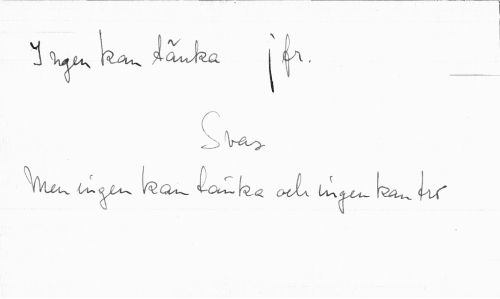 Ingen kan tänka jfr.
Svar
Men ingen kan tänka och ingen kan tro